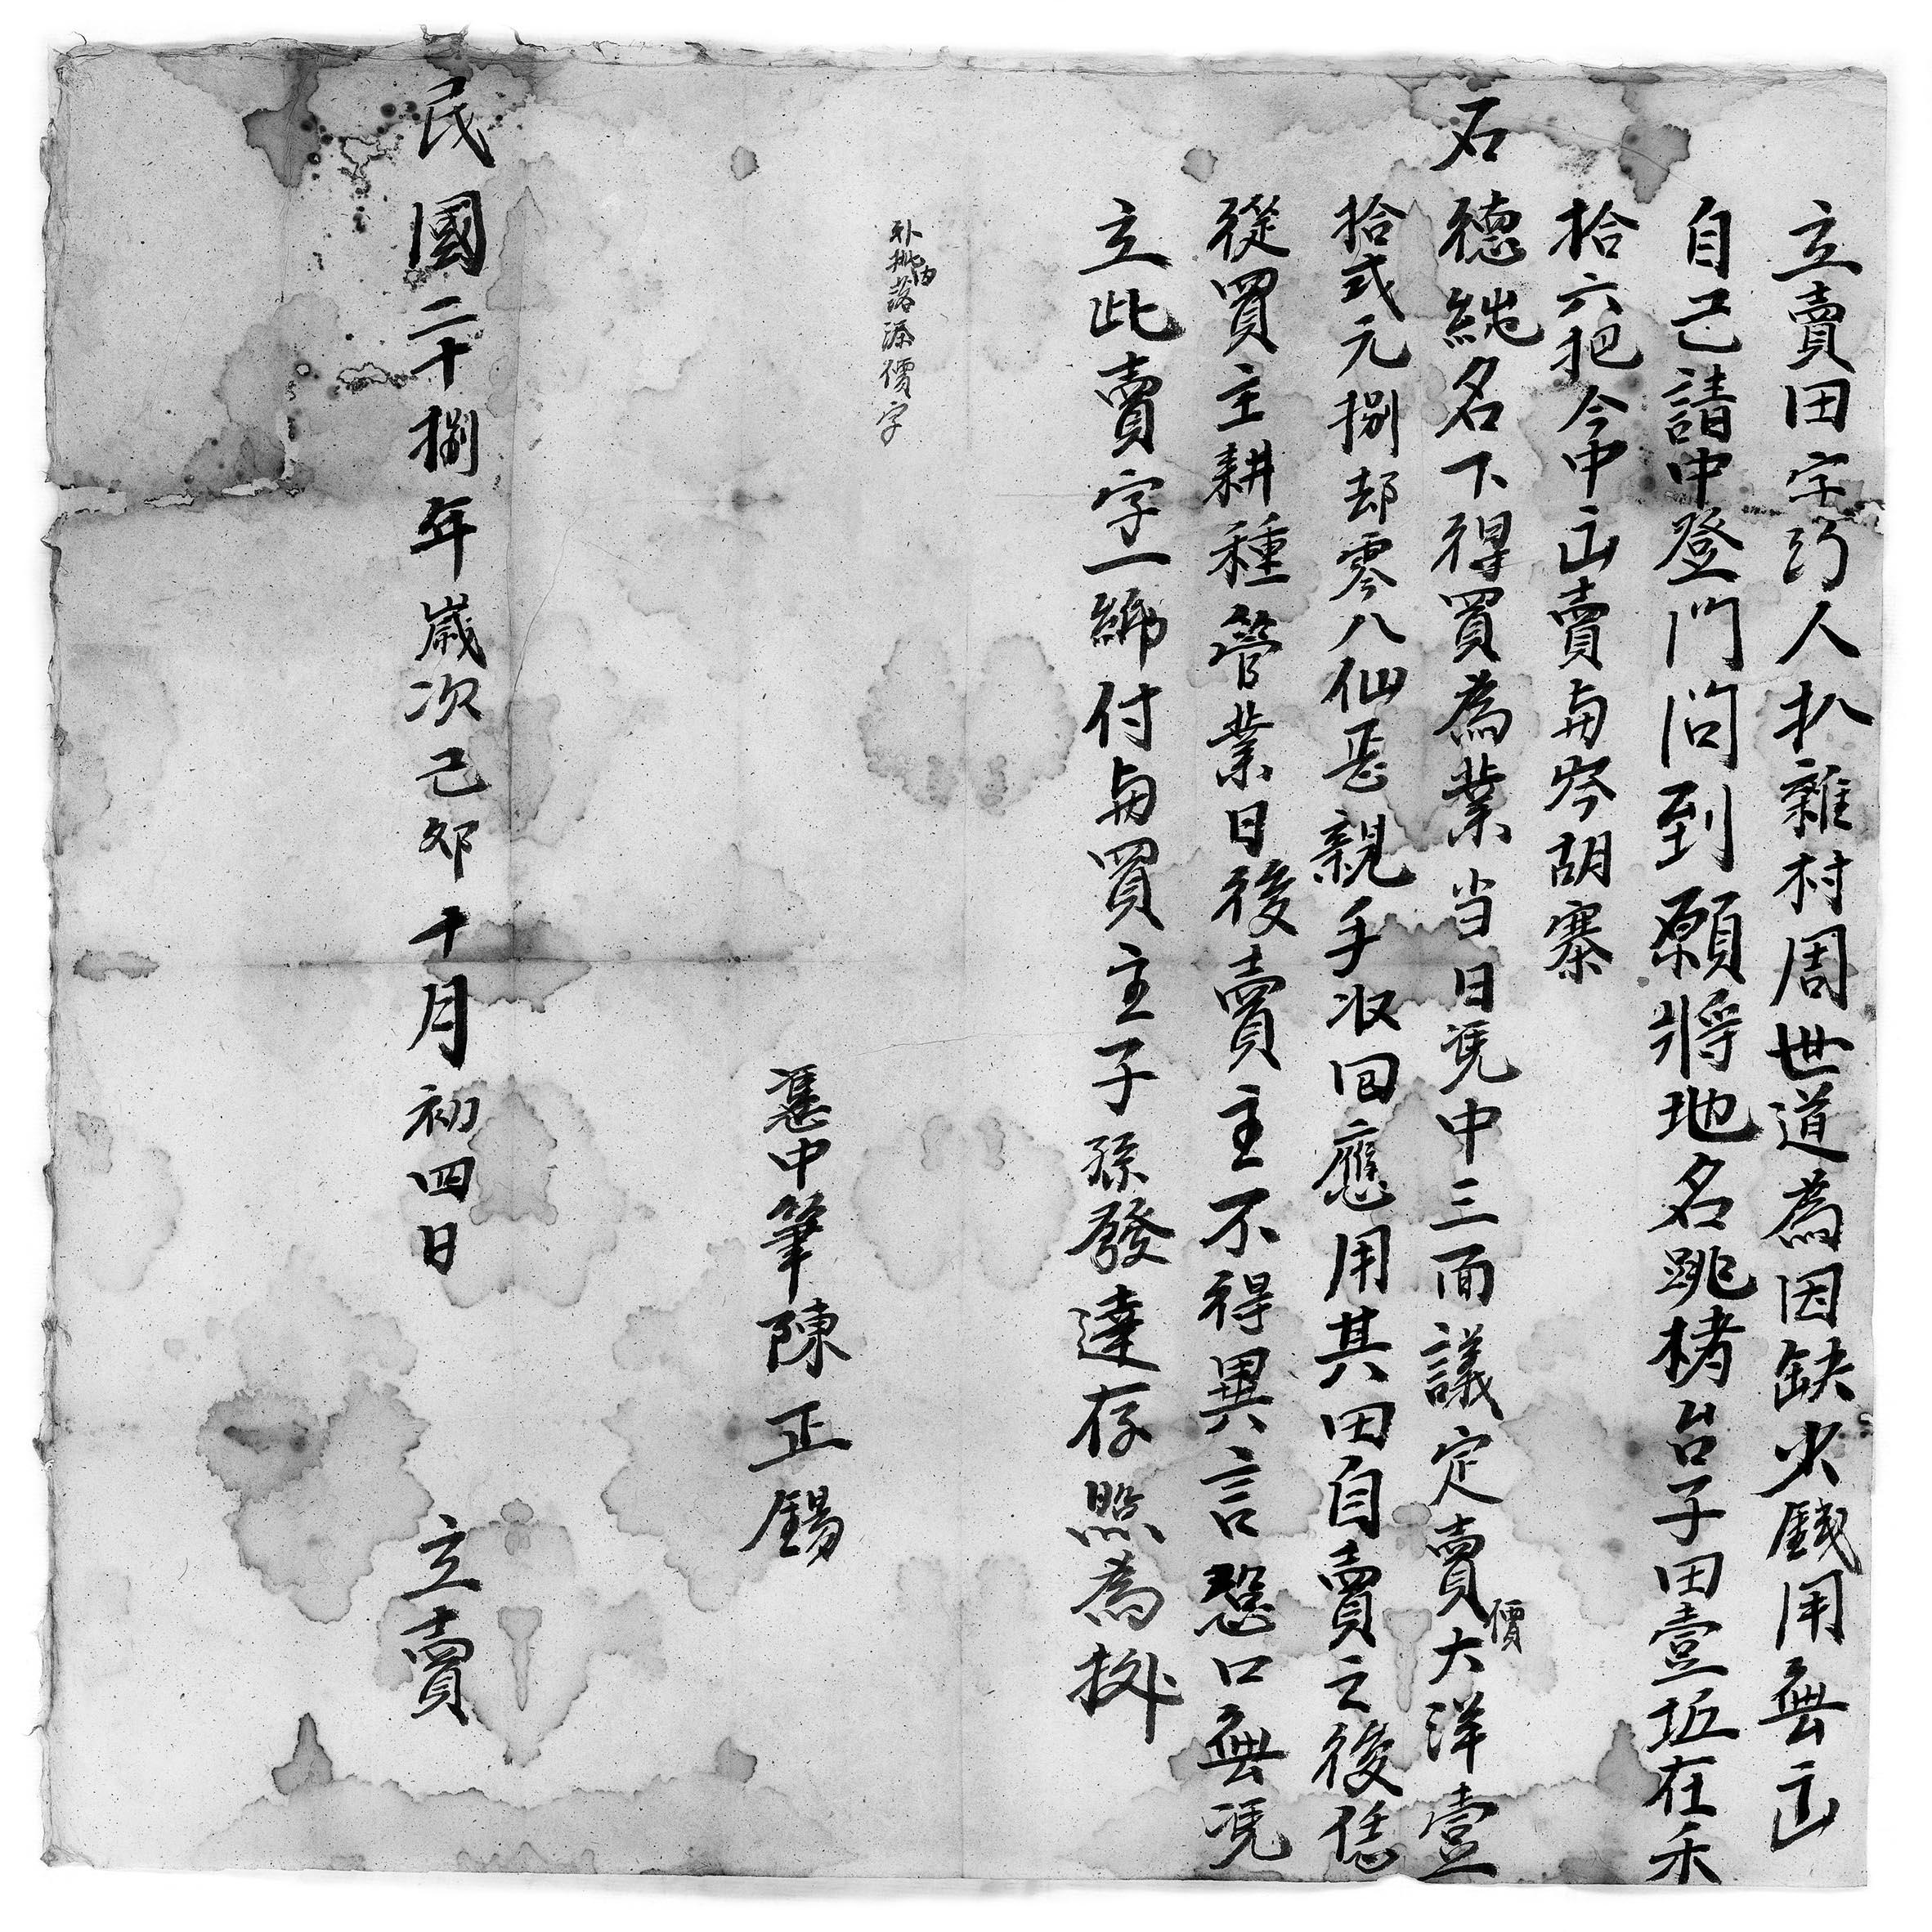 立賣田字約人扒雜村周世道為因缺少錢用無出
自己請中登門問到願將地名跳栲台子田壹坵在禾
拾六把今中出賣與岑胡寨
石德純名下得買為業当日凭中三面議定賣價大洋壹
拾弍元捌却零八仙正親手收回應用其田自賣之後恁
從買主耕種管業日後賣主不得異言恐口無凭
立此賣字一紙付與買主子孫發達存照為拠
補批内落添價字
憑中筆陳正錫
民國二十捌年歲次己夘十月初四日 立賣